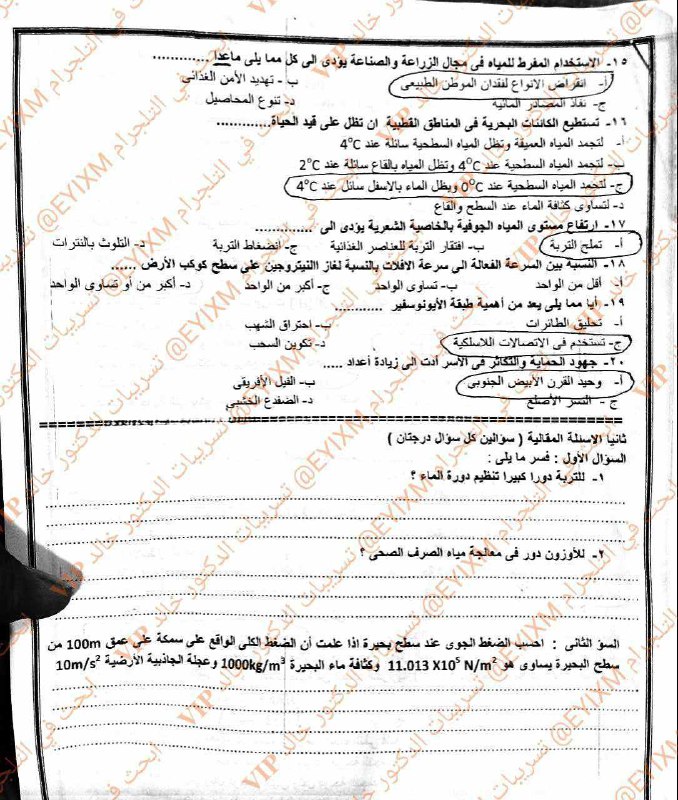 ١٥- الاستخدام المفرط للمياه فى مجال الزراعة والصناعة يؤدى الى كل مما يلى ماعدا ............
أ- انقراض الانواع لفقدان الموطن الطبيعى ب- تهديد الأمن الغذائى
ج- نفاذ المصادر المائية د- تنوع المحاصيل
١٦- تستطيع الكائنات البحرية فى المناطق القطبية ان تظل على قيد الحياة............
أ- لتجمد المياه العميقة وتظل المياه السطحية سائلة عند 4⁰C
ب- لتجمد المياه السطحية عند 4⁰C وتظل المياه بالقاع سائلة عند 2⁰C
ج- لتجمد المياه السطحية عند 0⁰C ويظل الماء بالاسفل سائل عند 4⁰C
د- لتساوى كثافة الماء عند السطح والقاع
١٧- ارتفاع مستوى المياه الجوفية بالخاصية الشعرية يؤدى الى ............
أ- تملح التربة ب- افتقار التربة للعناصر الغذائية ج- انضغاط التربة د- التلوث بالنترات
١٨- النسبة بين السرعة الفعالة الى سرعة الافلات بالنسبة لغاز االنيتروجين على سطح كوكب الأرض ......
أ- أقل من الواحد ب- تساوى الواحد ج- أكبر من الواحد د- أكبر من أو تساوى الواحد
١٩- أيا مما يلى يعد من أهمية طبقة الأيونوسفير ............
أ- تحليق الطائرات ب- احتراق الشهب
ج- تستخدم فى الاتصالات اللاسلكية د- تكوين السحب
٢٠- جهود الحماية والتكاثر فى الأسر أدت الى زيادة أعداد .....
أ- وحيد القرن الأبيض الجنوبى ب- الفيل الأفريقى
ج- النسر الأصلع د- الضفدع الخشبى
ثانيا الاسئلة المقالية ( سؤالين كل سؤال درجتان )
السؤال الأول : فسر ما يلى :
١- للتربة دورا كبيرا تنظيم دورة الماء ؟
٢- للأوزون دور فى معالجة مياه الصرف الصحى ؟
السؤ الثانى : احسب الضغط الجوى عند سطح بحيرة اذا علمت أن الضغط الكلى الواقع على سمكة على عمق 100m من
سطح البحيرة يساوى هو 11.013 X10⁵ N/m² وكثافة ماء البحيرة 1000kg/m³ وعجلة الجاذبية الأرضية 10m/s²
ابحث في التلجرام @EYIXM تسريبات الدكتور خالد VIP